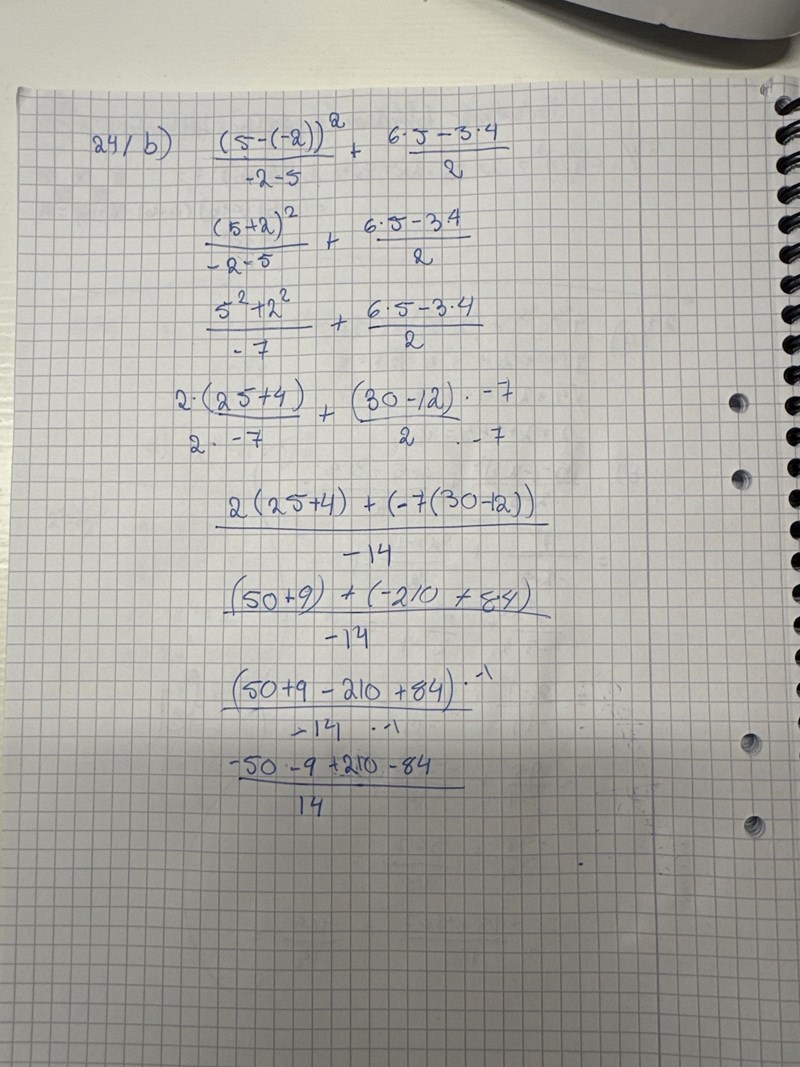 24/ b) (5-(-2))² / -2-5 + 6·5-3·4 / 2
(5+2)² / -2-5 + 6·5-3·4 / 2
5²+2² / -7 + 6·5-3·4 / 2
2·(25+4) / 2·-7 + (30-12)·-7 / 2·-7
2(25+4) + (-7(30-12)) / -14
(50+9) + (-210 + 84) / -14
(50+9-210+84)·-1 / -14·-1
-50-9+210-84 / 14